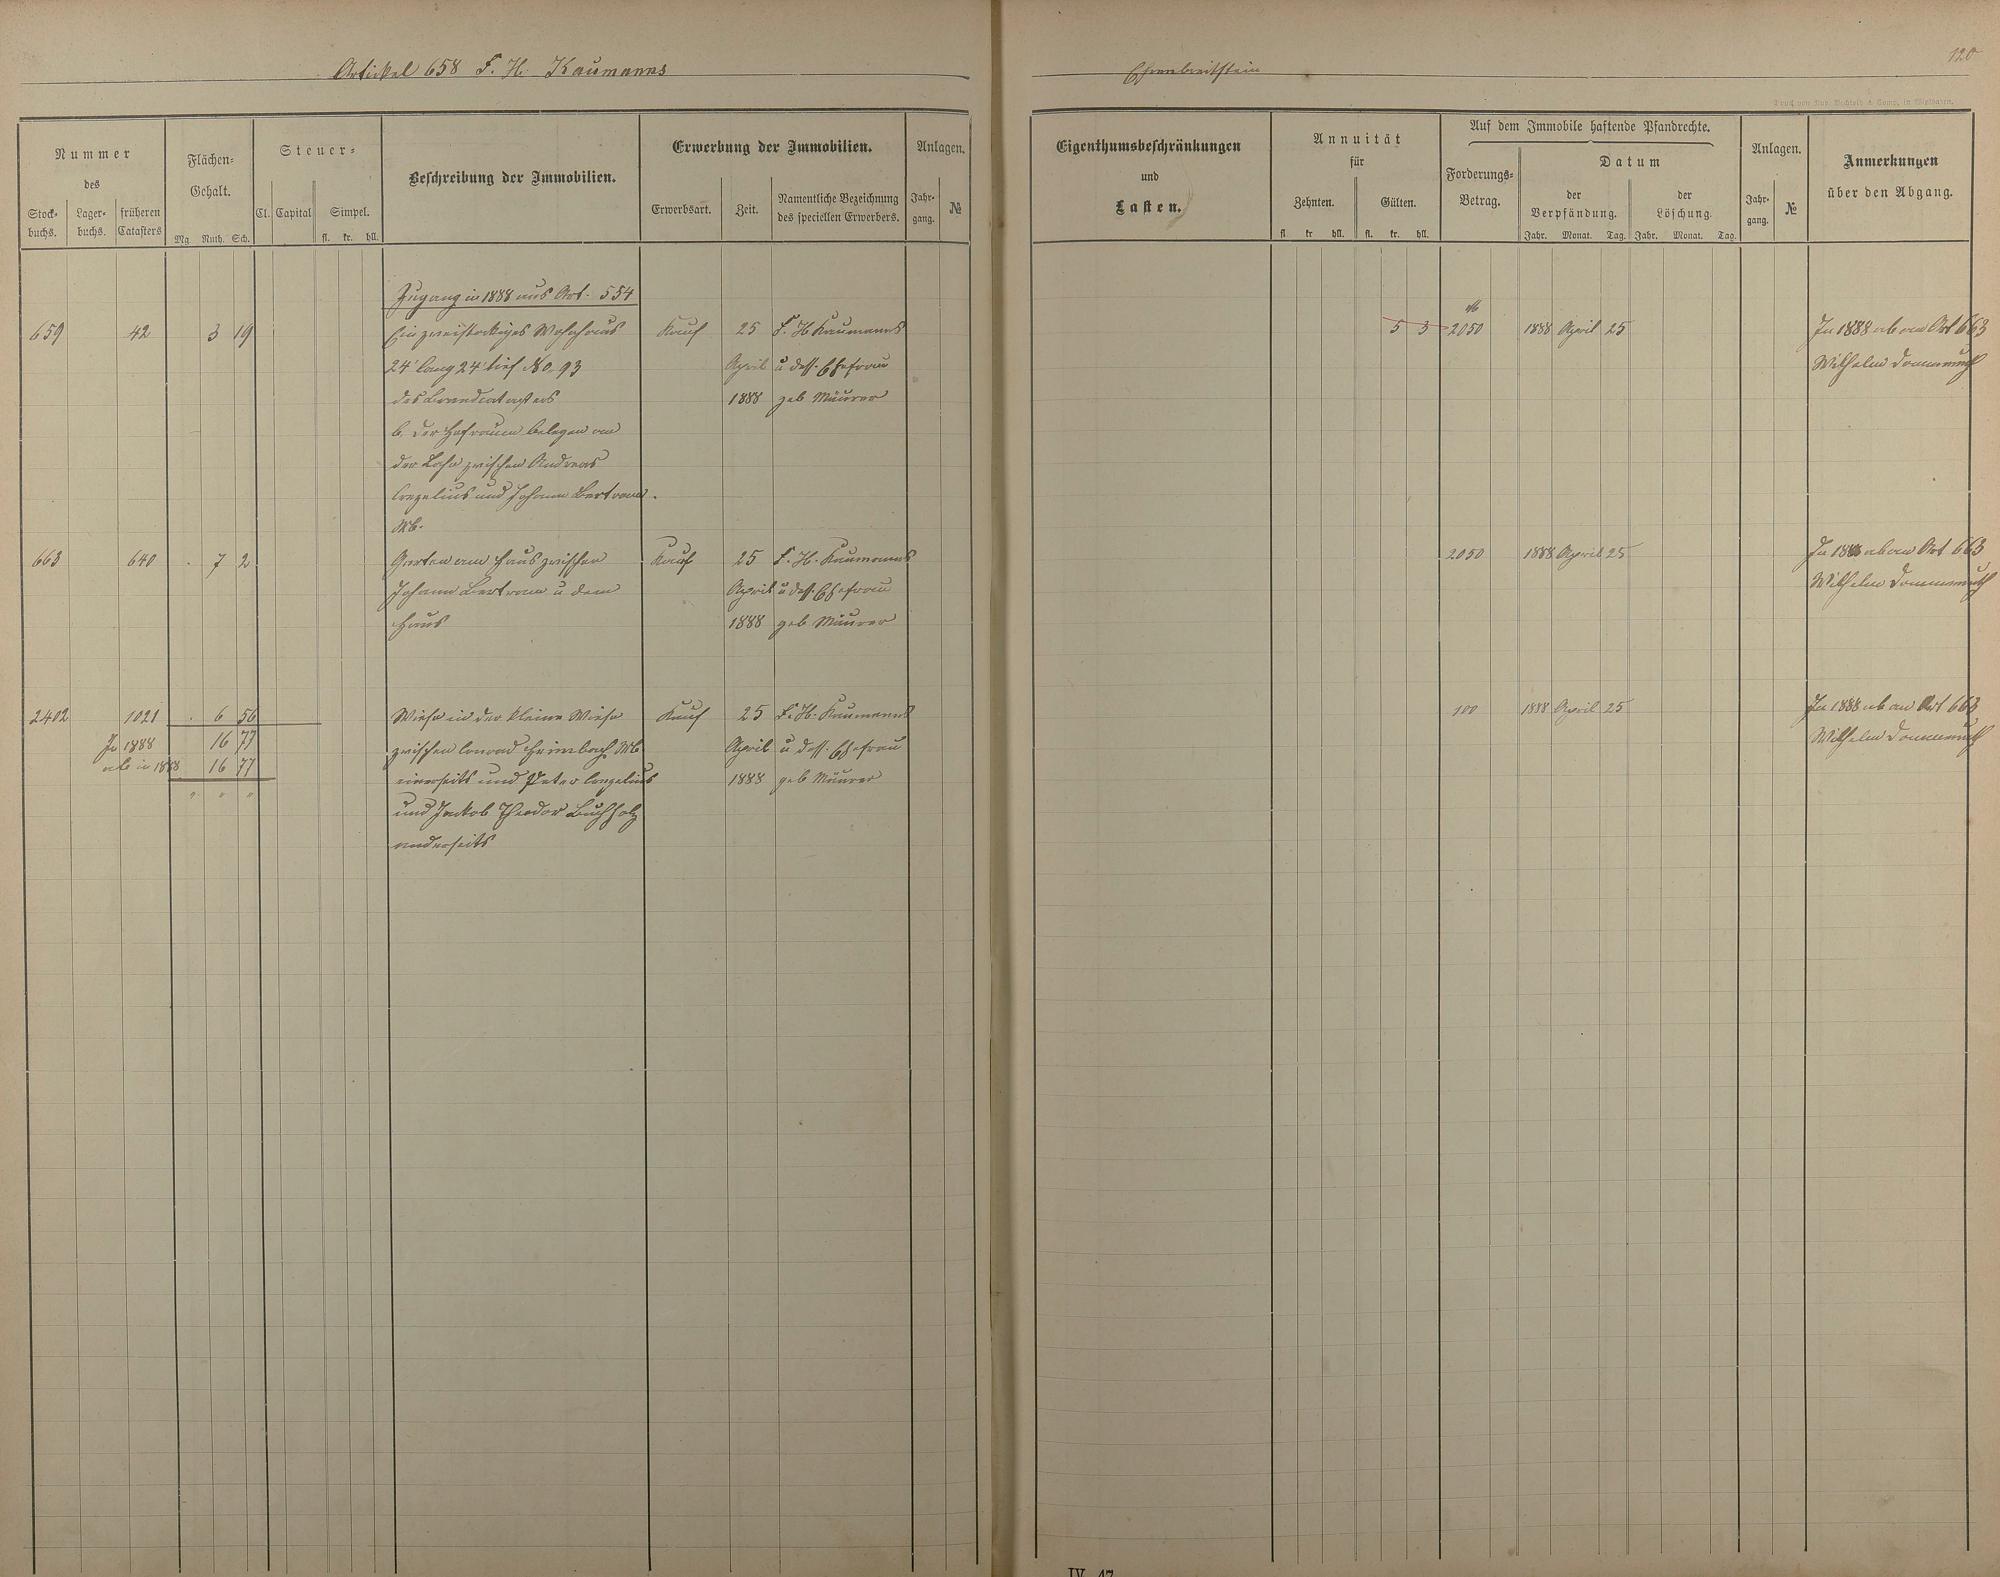 Artickel 658 F. H. Kaumanns
Ehrenbreitstein
120
Druck von Rud. Bechtold & Comp. in Wiesbaden.
Nummer
des
Stock-
buchs.
Lager-
buchs.
früheren
Catasters
Flächen-
Gehalt.
Mg. Ruth. Sch.
Steuer-
Cl. Capital Simpel.
fl. kr. hll.
Beschreibung der Immobilien.
Erwerbung der Immobilien.
Erwerbsart. Zeit.
Namentliche Bezeichnung
des speciellen Erwerbers.
Anlagen.
Jahr-
gang.
№
Eigenthumsbeschränkungen
und
Lasten.
Annuität
für
Zehnten. Gülten.
fl. kr. hll. fl. kr. hll.
Auf dem Immobile haftende Pfandrechte.
Forderungs-
Betrag.
Datum
der
Verpfändung.
der
Löschung.
Jahr. Monat. Tag. Jahr. Monat. Tag.
Anlagen.
Jahr-
gang.
№
Anmerkungen
über den Abgang.
Zugang in 1888 aus Art. 554
659 42 3 19 Ein zweistockiges Wohnhaus Kauf 25 F. H. Kaumanns 5 3 2050 1888 April 25 In 1888 ab an Art 663
24' lang 24' tief No. 93 April u dess. Ehefrau Wilhelm
des Brandcatasters 1888 geb Mäurer
b. der Hofraum belegen an
der Lahn zwischen Andreas
und Johann Bertram.
Mb.
663 640 . 7 2 Garten am Haus zwischen Kauf 25 F. H. Kaumanns 2050 1888 April 25 In 1888 ab an Art 663
Johann Bertram u dem April u dess. Ehefrau Wilhelm
Haus 1888 geb Mäurer
2402 1021 . 6 56 Wiese in der kleine Wiese Kauf 25 F. H. Kaumanns 100 1888 April 25 In 1888 ab an Art 663
In 1888 16 77 zwischen Conrad Heimbach Mb April u dess. Ehefrau Wilhelm
ab in 1888 16 77 einerseits und Peter 1888 geb Mäurer
" " " und Jakob Theodor Buchholz
anderseits
IV. 47